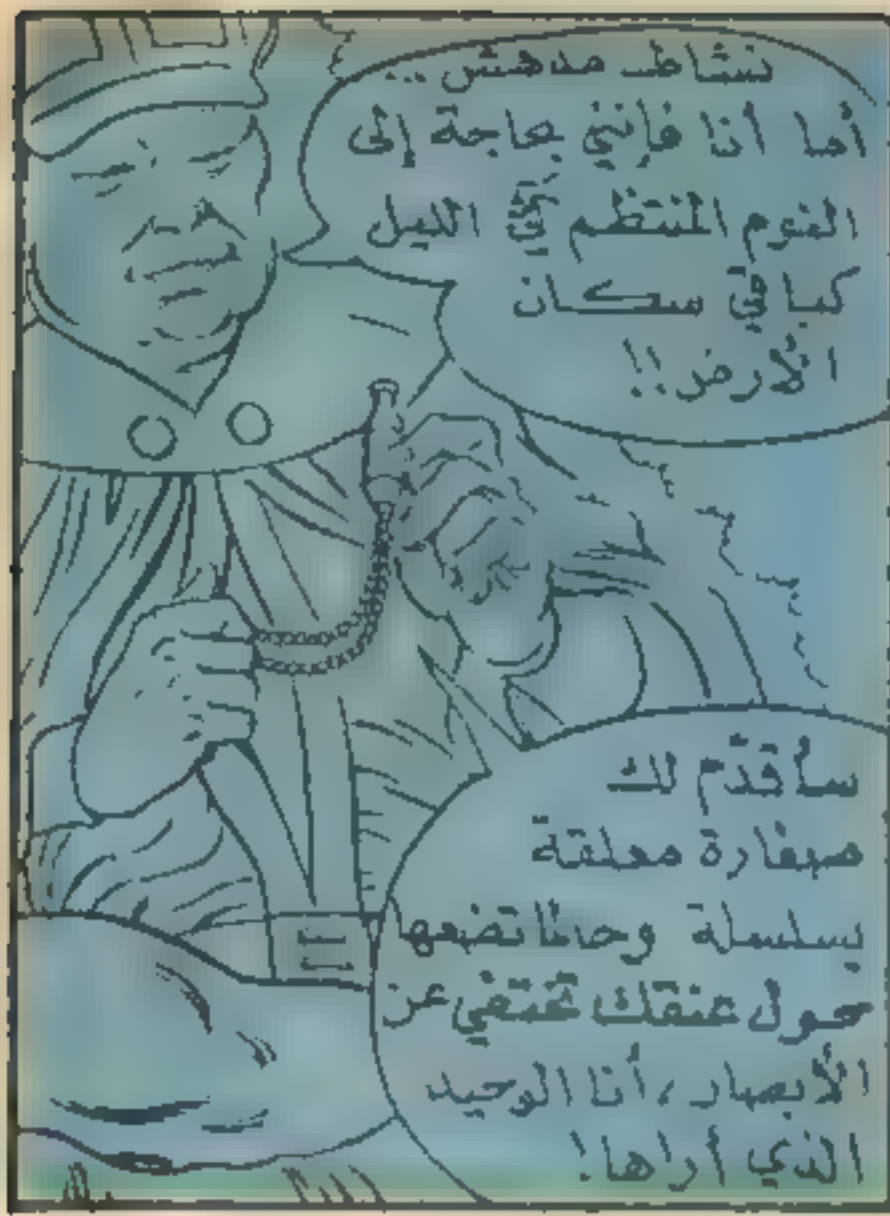 نشاط مدهش ..
أما أنا فإنني بحاجة إلى
النوم المنتظم في الليل
كباقي سكان
الأرض !!
سأقدّم لك
صفارة معلقة
بسلسلة وحالما تضعها
حول عنقك تختفي عن
الأبصار ، أنا الوحيد
الذي أراها !